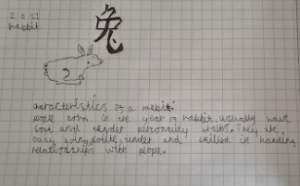 2011
rabbit
兔
characteristics of a rabbit:
people born in the year of rabbit, usually have
soft and tender personality traits. They are
easy going, polite, tender and skilled in handling
relationships with people.